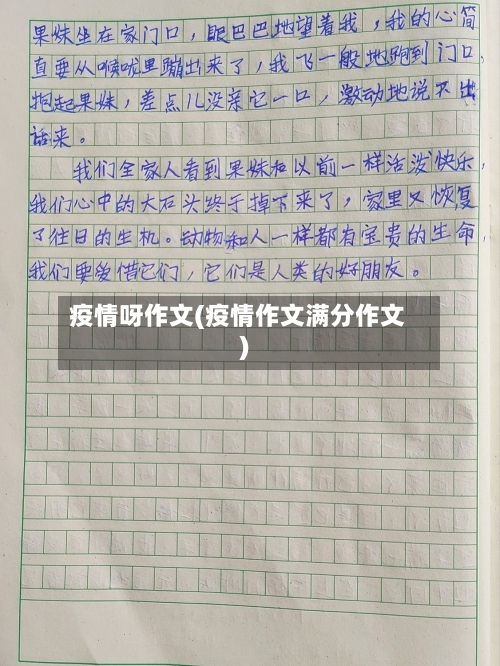 果妹坐在家门口，眼巴巴地望着我，我的心简
直要从喉咙里蹦出来了，我飞一般地跑到门口，
抱起果妹，差点儿没亲它一口，激动地说不出
话来。
我们全家人看到果妹和以前一样活泼快乐，
我们心中的大石头终于掉下来了，家里又恢复
了往日的生机。动物和人一样都有宝贵的生命，
我们要爱惜它们，它们是人类的好朋友。
疫情呀作文(疫情作文满分作文
)